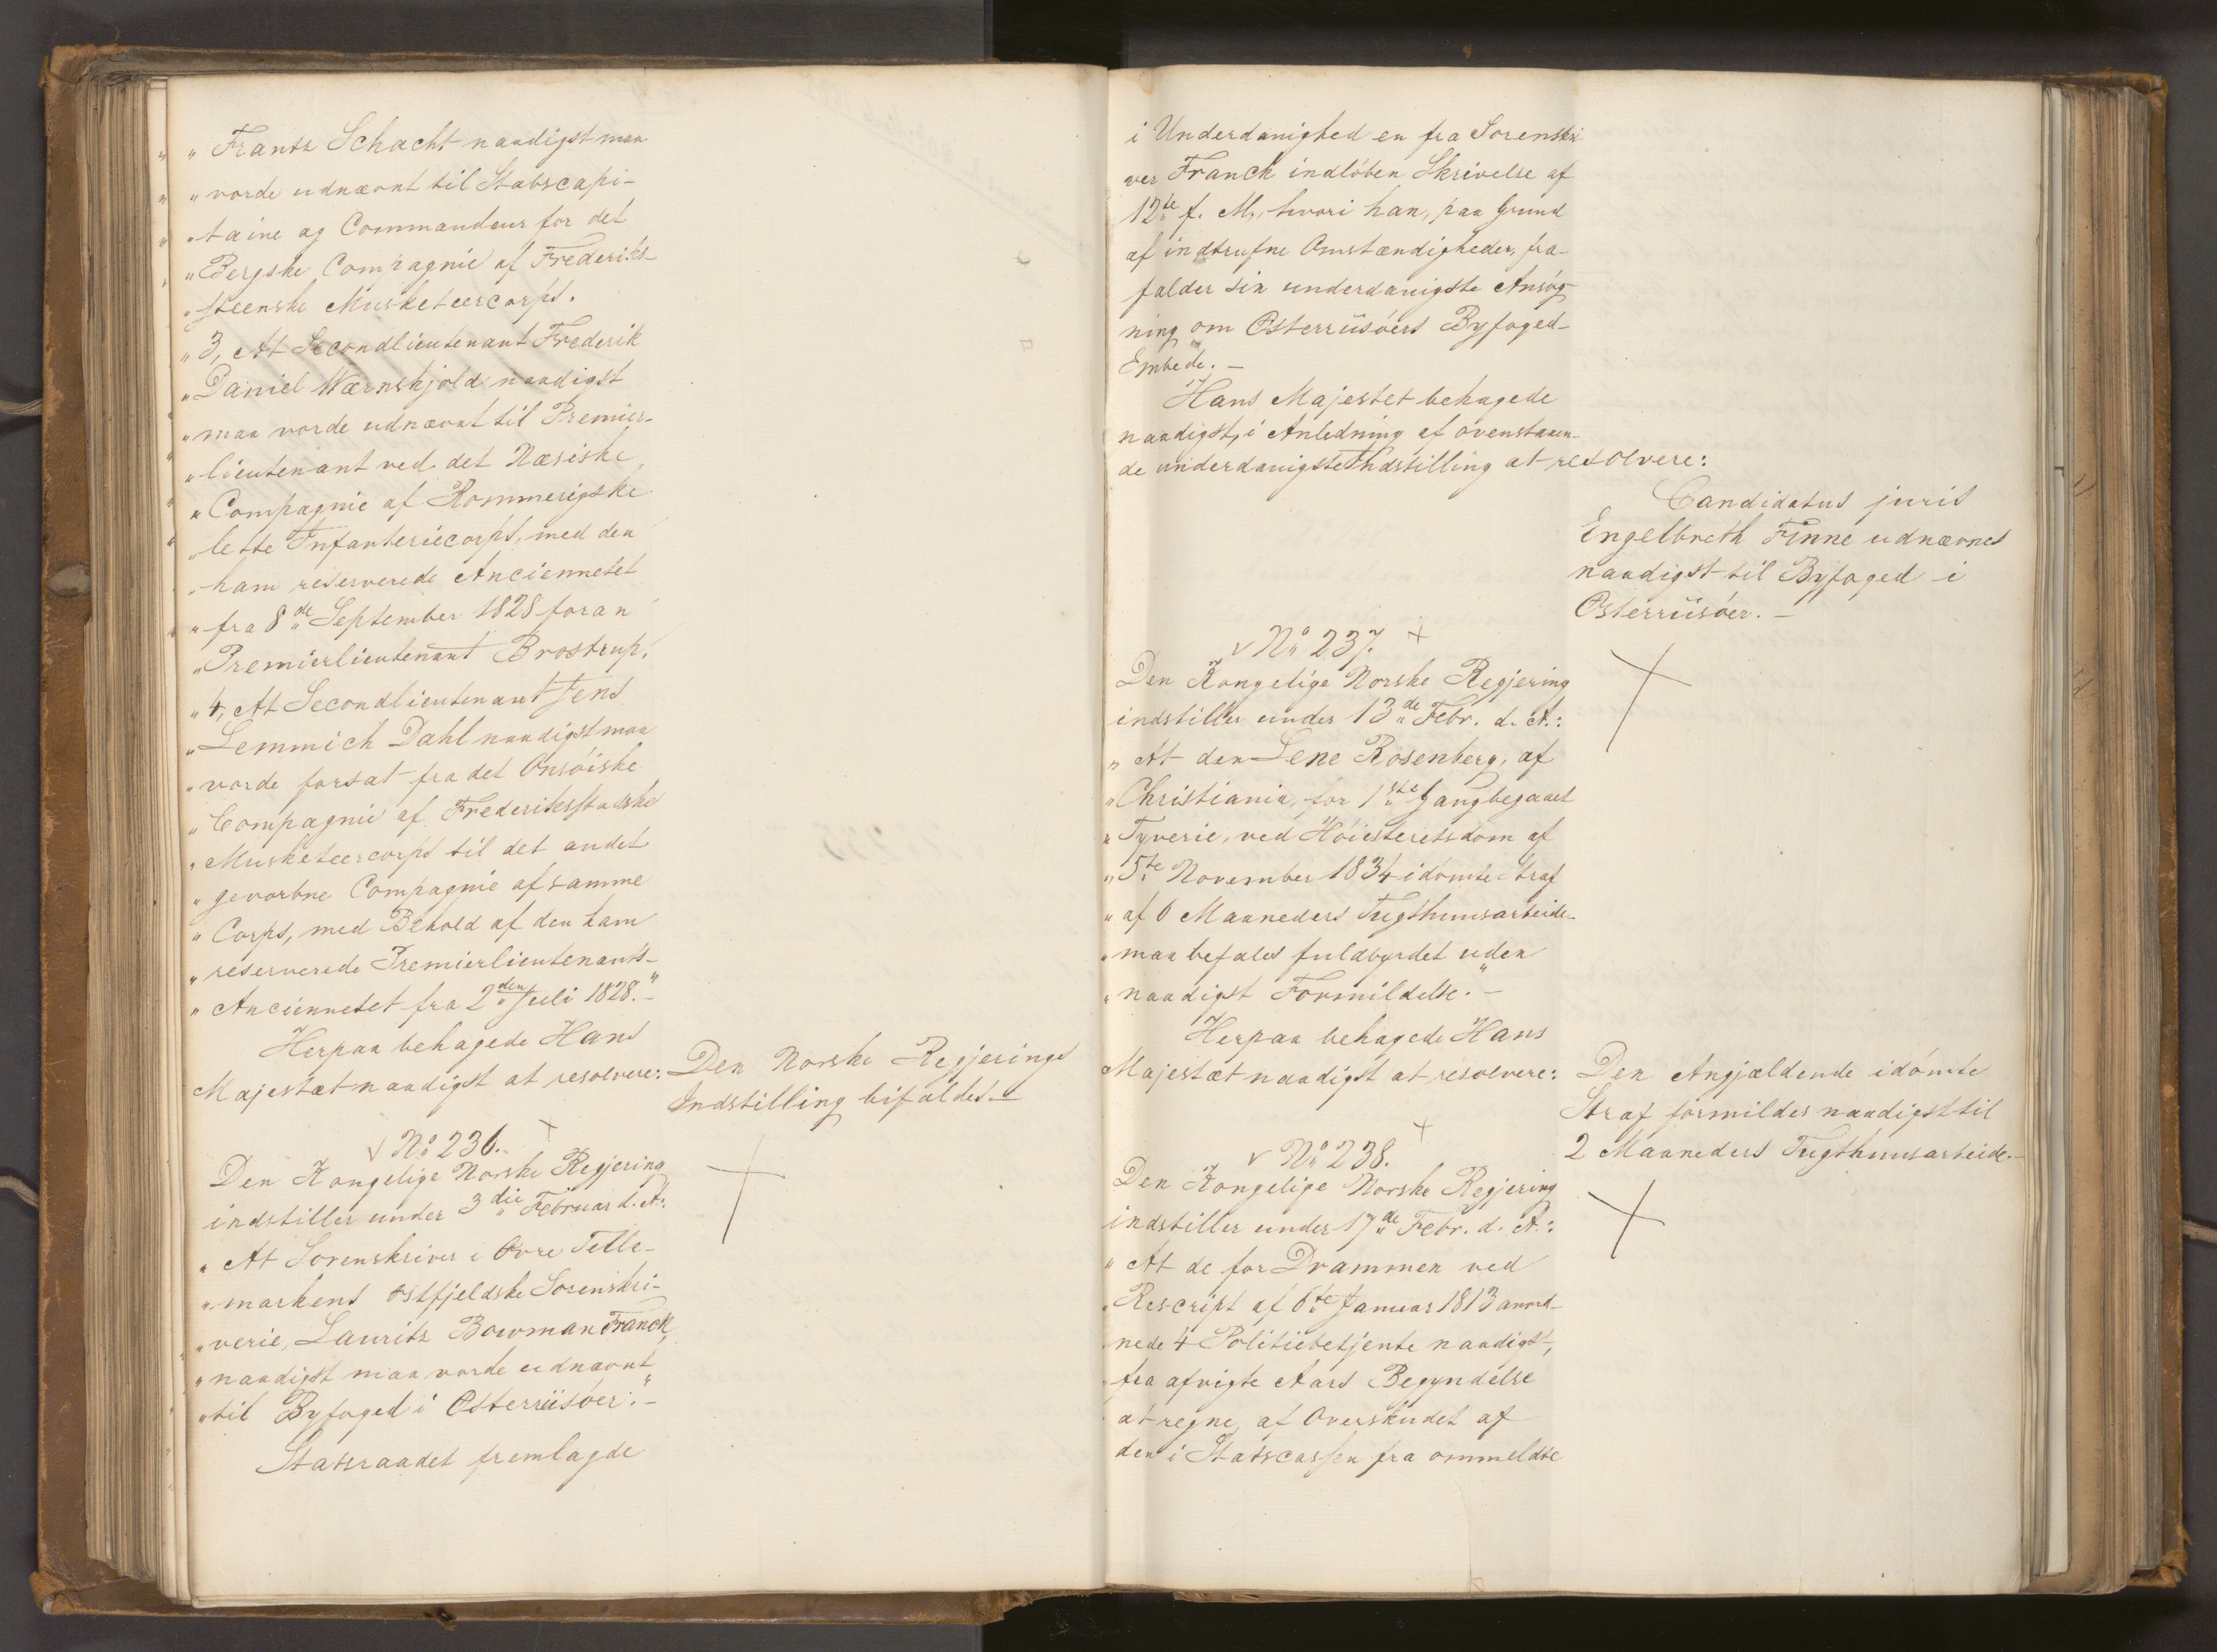 " Frantz Schacht naadigst maa
" vorde udnævnt til Stabscapi-
" taine og Commandeur for det
" Bergske Compagnie af Frederiks-
" steenske Musketeercorps.
" 3, At Secondlieutenant Frederik
" Daniel Wærnskjold naadigst
" maa vorde udnævnt til Premier-
" lieutenant ved det Næsiske
" Compagnie af Rommerigske
" lette Infanteriecorps, med den
" ham reserverede Anciennetet
" fra 8de September 1828 foran
" Premierlieutenant Brostrup.
" 4, At Secondlieutenant Jens
" Lemmich Dahl naadigst maa
" vorde forsat fra det Onsöiske
" Compagnie af Frederiksstadske
" Musketeercorps til det andet
" gevorbne Compagnie af samme
" Corps, med Behold af den ham
" reserverede Premierlieutenants-
" Anciennetet fra 2den Juli 1828."-
Herpaa behagede Hans
Majestæt naadigst at resolvere:
Den Norske Regjerings
Indstilling bifaldes.-
No 236.
Den Kongelige Norske Regjering
indstiller under 3die Februar d. A.:
" At Sorenskriver i Övre Telle-
" markens östfjeldske Sorenskri-
" verie, Lauritz Bowman Franck,
" naadigst maa vorde udnævnt
" til Byfoged i Österriisöer."-
Statsraadet fremlagde
i Underdanighed en fra Sorenskri
ver Franck indlöben Skrivelse af
12te f. M., hvori han, paa Grund
af indtrufne Omstændigheder, fra-
falder sin underdanigste Ansög-
ning om Österriisöers Byfoged-
Embede.-
Hans Majestet behagede
naadigst, i Anledning af ovenstaaen-
de underdanigste Indstilling at resolvere:
Candidatus juris
Engelbreth Finne udnævnes
naadigst til Byfoged i
Österriisöer.-
No 237.
Den Kongelige Norske Regjering
indstiller under 13de Febr. d. A.:
" At den Lene Rosenberg, af
" Christiania, for 1ste Gang begaaet
" Tyverie, ved Höiesteretsdom af
" 5te November 1834 idömte Straf
" af 6 Maaneders Tugthuusarbeide
" maa befales fuldbyrdet uden
" naadigst Formildelse."-
Herpaa behagede Hans
Majestæt naadigst at resolvere:
Den Angjældende idömte
Straf formildes naadigst til
2 Maaneders Tugthuusarbeide.-
No 238.
Den Kongelige Norske Regjering
indstiller under 17de Febr. d. A.:
" At de for Drammen ved
" Rescript af 6te Januar 1813 anord-
nede 4 Politiebetjente naadigst,
" fra afvigte Aars Begyndelse
at regne, af Overskudet af
den i Statscassen fra ommeldte